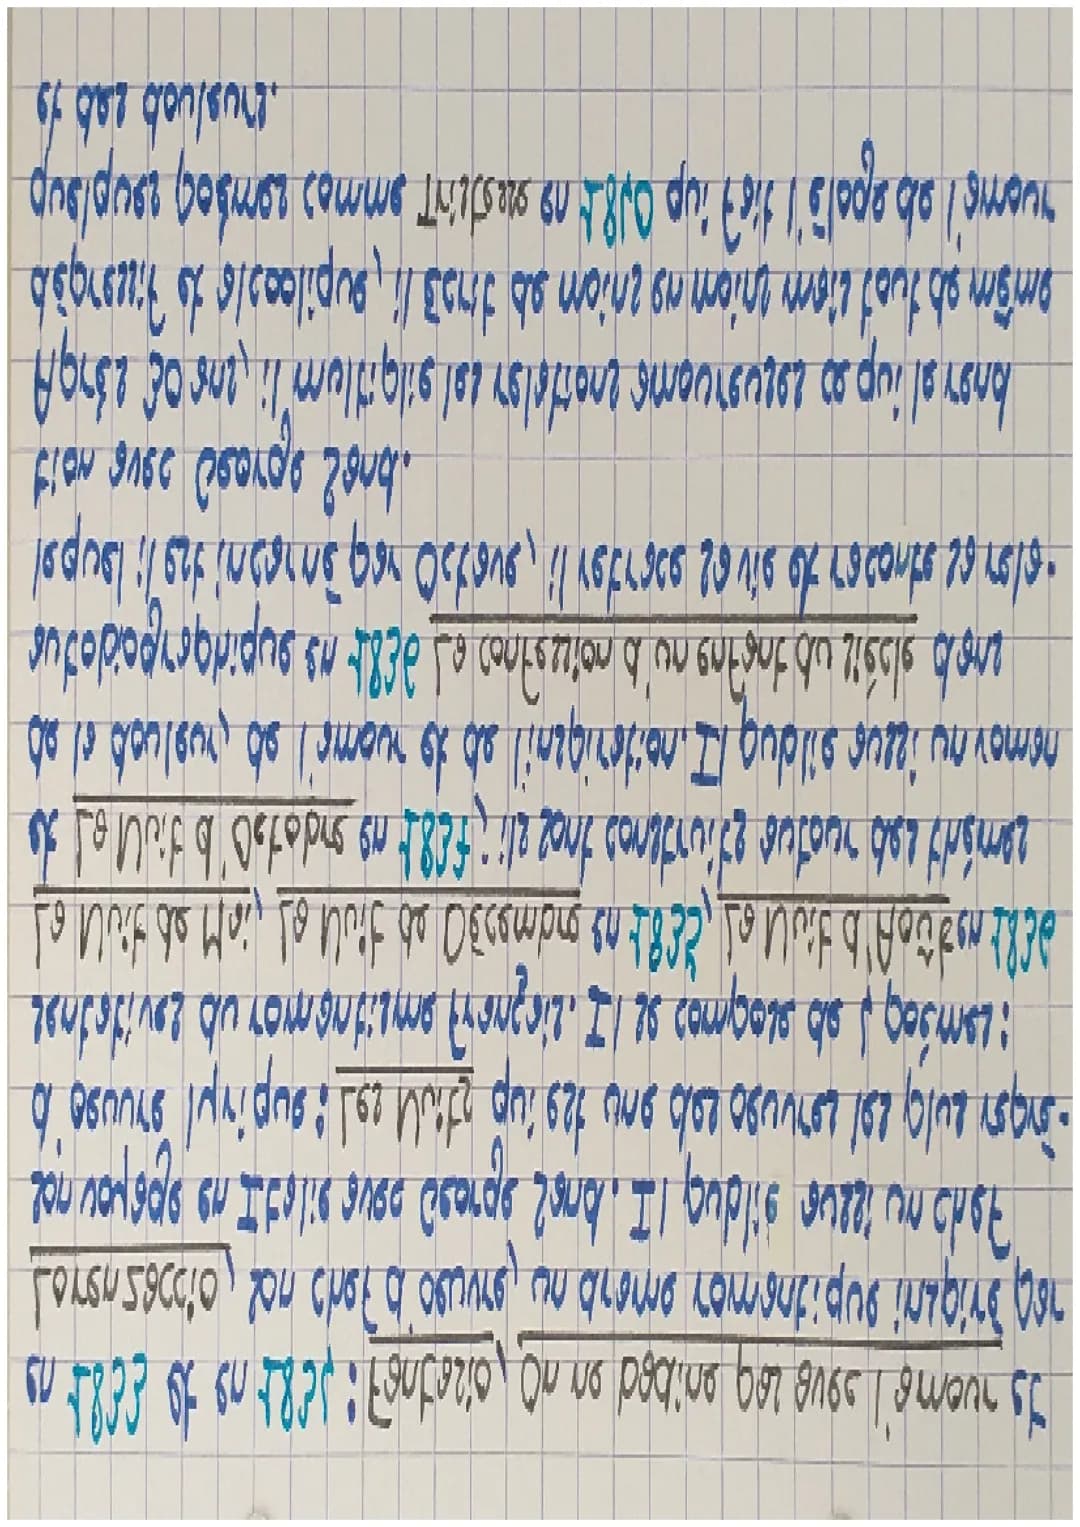 en 1833 et en 1834 : Fantasio, On ne badine pas avec l'amour et
Lorenzaccio, son chef d'oeuvre, un drame romantique inspiré par
son voyage en Italie avec George Sand. Il publie aussi un chef
d'oeuvre lyrique : Les Nuits qui est une des oeuvres les plus repré-
sentatives du romantisme français. Il se compose de 4 poèmes :
La Nuit de Mai, La Nuit de Décembre en 1835, La Nuit d'Août en 1836
et La Nuit d'Octobre en 1837, ils sont construits autour des thèmes
de la douleur, de l'amour et de l'inspiration. Il publie aussi un roman
autobiographique en 1836 La confession d'un enfant du siècle dans
lequel il est incarné par Octave, il retrace sa vie et raconte sa rela-
tion avec George Sand.
Après 30 ans, il multiplie les relations amoureuses ce qui le rend
dépressif et alcoolique, il écrit de moins en moins mais tout de même
quelques poèmes comme Tristesse en 1840 qui fait l'éloge de l'amour
et des douleurs.